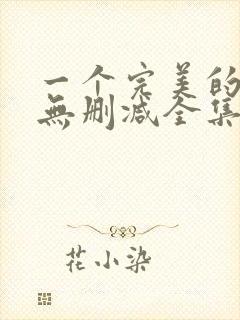 一个完美的
無删减全集
花小染